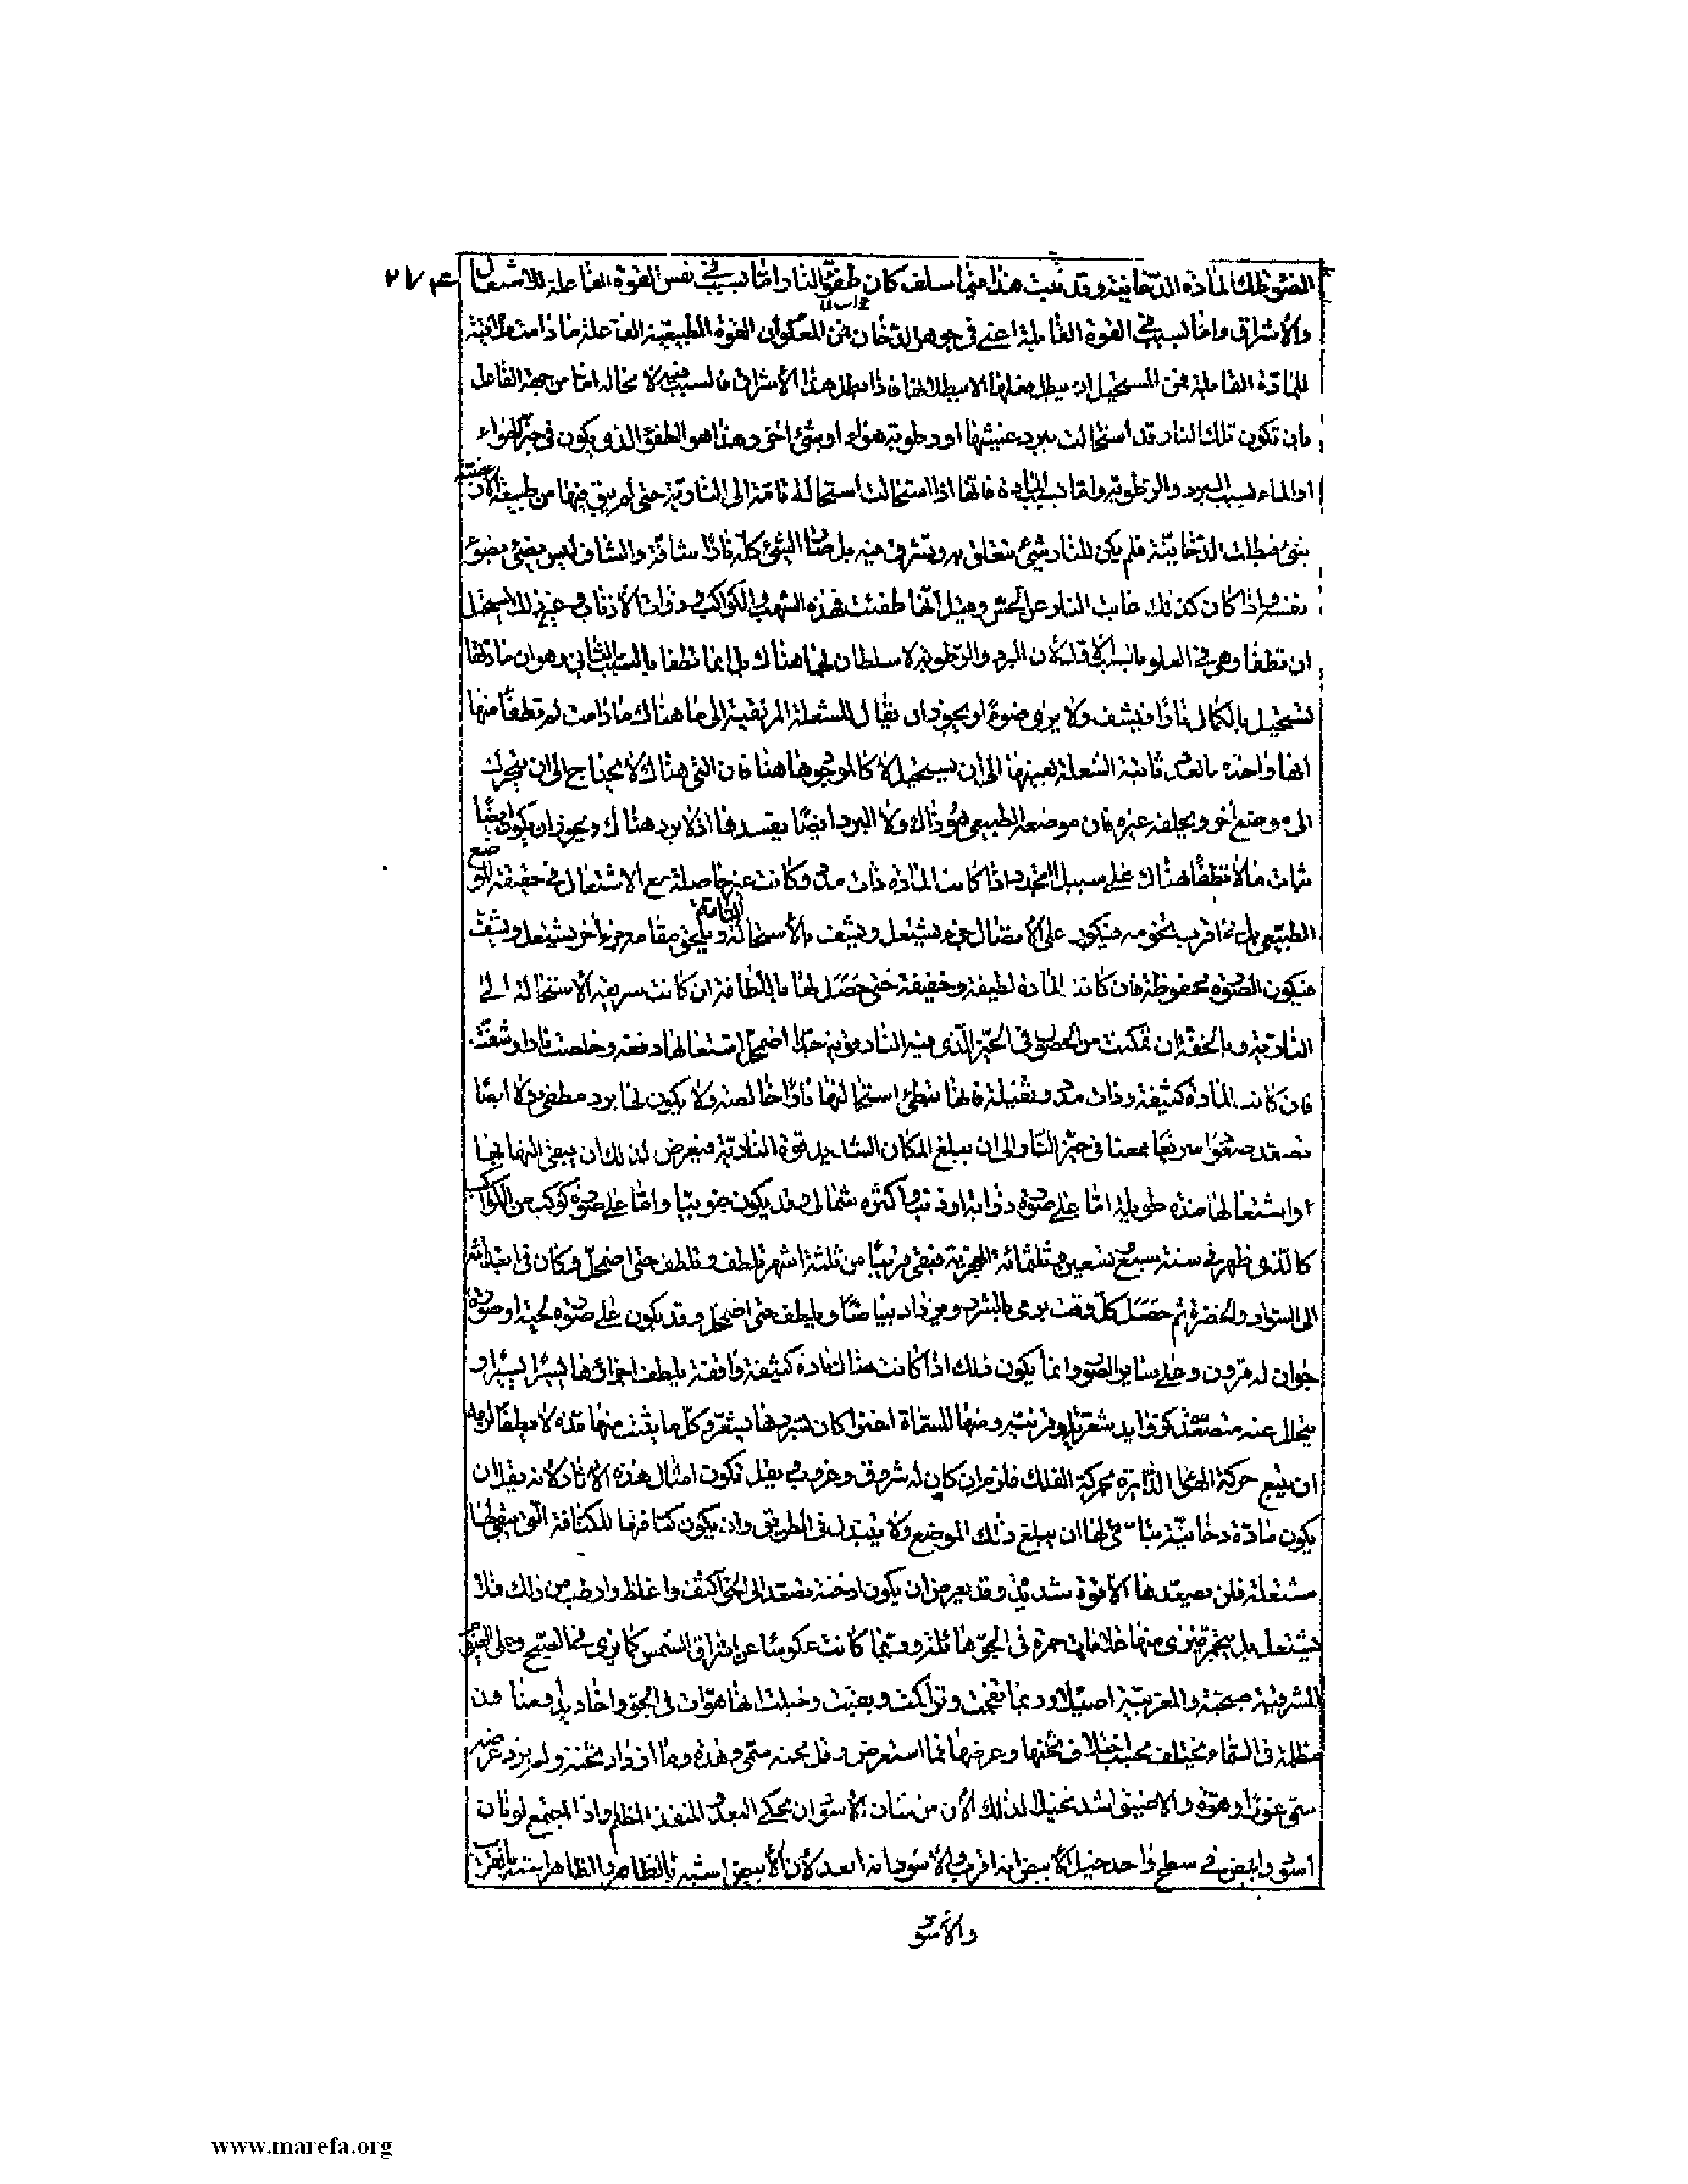 الضوء تلك المادة الدخانية وقد ثبت هذا فيما سلف كان طفؤ النار اما لسبب في نفس القوة الفاعلة للاشتعال
والاشراق واما لسبب في القوة القابلة اعني في جوهر الدخان فمن المعلوم ان القوة الطبيعية الفاعلة ما دامت ملاقية
للمادة القابلة فمن المستحيل ان يبطل فعلها الا ببطلانها فاذا بطل هذا الاشراق فالسبب فيه لا محالة اما من جهة الفاعل
بان تكون تلك النار قد استحالت ببرد غشيها او رطوبة هواء او بشئ اخر وهذا هو الطفؤ الذي يكون في حيز الهواء
او الماء لسبب البرد والرطوبة واما لسبب المادة فانها اذا استحالت استحالة تامة الى النارية حتى لم يبق فيها من طبيعة الارضية
شئ فبطلت الدخانية فلم يكن للنار شئ تتعلق به وتشرق فيه بل صار الشئ كله نارا شافة والشاف ليس مضيئ بضوء
نفسه واذا كان كذلك غابت النار عن الحس وخيل انها طفئت فهذه الشهب والكواكب وذوات الاذناب وغير ذلك يستحيل
ان تطفأ وهي في العلو بالسبب الاول لان البرد والرطوبة لا سلطان لها هناك بل انما تطفأ بالسبب الثاني وهو ان مادتها
تستحيل بالكمال نارا فيشف ولا يرى ضوءا ويجوز ان يقال للشعلة المرتقية الى ما هناك ما دامت لم تطفأ منها
انها واحدة بالعدد ثابتة الشعلة بعينها الى ان تستحيل لا كالموجود هاهنا فان التي هناك لا يحتاج الى ان يتحرك
الى موضع اخر ويخلفه غيره فان موضعه الطبيعي هو ذاك ولا البرد ايضا يفسدها اذ لا برد هناك ويجوز ان يكون ايضا
ثبات ما لا تطفأ هناك على سبيل التجدد اذا كانت المادة ذات مدد وكانت غير حاصلة مع الاشتعال في حقيقة الموضع
الطبيعي بل في اقرب تخومه فيكون على الاتصال جزء يشتعل ويشف بالاستحالة التامة ويلحق مقامه جزء اخر يشتعل ويشف
فيكون الصورة محفوظة فان كانت المادة لطيفة وخفيفة حتى حصل لها باللطافة ان كانت سريعة الاستحالة الى
النارية وبالخفة ان تمكنت من الحصول في الحيز الذي فيه النار قوية جدا اضمحل اشتعالها دفعة وخلصت نارا وشفت
فان كانت المادة كثيفة وذات مدد وثقيلة فانها تبطئ استحالتها نارا خالصة ولا يكون لها برد مطفئ ولا ايضا
تصعد صعودا سريعا ممعنا في حيز النار الى ان يبلغ المكان الشديد قوة النارية فيعرض لذلك ان يبقى التهابها
او اشتعالها مدة طويلة اما على صورة ذوابة او ذنب واكثره شمالي وقد يكون جنوبيا واما على صورة كوكب من الكواكب
كالذي ظهر في سنة سبع وتسعين وثلثمائة للهجرة فبقى قريبا من ثلثة اشهر يلطف ويلطف حتى اضمحل وكان في ابتدائه
الى السواد والخضرة ثم حصل كل وقت يرمى بالشرر ويزداد بياضا ويلطف حتى اضمحل وقد يكون على صورة لحية او صورة
حيوان له قرون وعلى سائر الصور وانما يكون ذلك اذا كانت المادة كثيفة واقفة يلطف اجزاؤها يسيرا يسيرا و
يتحلل عنه متصعدة كزوايد شعرية او قرنية ومنها المسماة اعنزا كان شررها يشعر وكل ما يثبت منها مدة لا يطفأ لزمه
ان يتبع حركة الهواء الدائرة بحركة الفلك فلزم ان كان له شروق وغروب يقل تكون امثال هذه الاثار لانه يقل ان
يكون مادة دخانية يتأتى لها ان يبلغ ذلك الموضع ولا يتبدل في الطريق وان يكون كثافتها للكثافة التي يبقى لها
مشتعلة فلن يصعدها الا قوة شديدة وقد يعرض ان يكون ادخنة تصعد الى الجو اكثف واغلظ وارطب من ذلك فلا
يشتعل بل يتجمر فيرى منها علامات حمرة في الجو هائلة وربما كانت عكوسا عن اشراق الشمس كما يرى في الصبح وعلى الغيوم
المشرقية صبحية والمغربية اصيلا وربما تفحمت وتراكمت وبقيت وخيلت انها هوات في الجو واخاديد ومنافذ
مظلمة في السماء يختلف بحسب اختلاف ثخنها وعرضها فما استعرض وقل ثخنه سمى وهدة وما ازداد ثخنه ولم يزد عرضه
سمى غورا وهوة والاضيق اشد تخييلا لذلك لان من شان الاسود ان يحكى البعد والمنفذ المظلم واذا اجتمع لونان
اسود وابيض في سطح واحد خيل الابيض انه اقرب والاسود انه ابعد لان الابيض اشبه بالظاهر والظاهر اشبه بالقرب
والاسود
٢٧٣
www.marefa.org